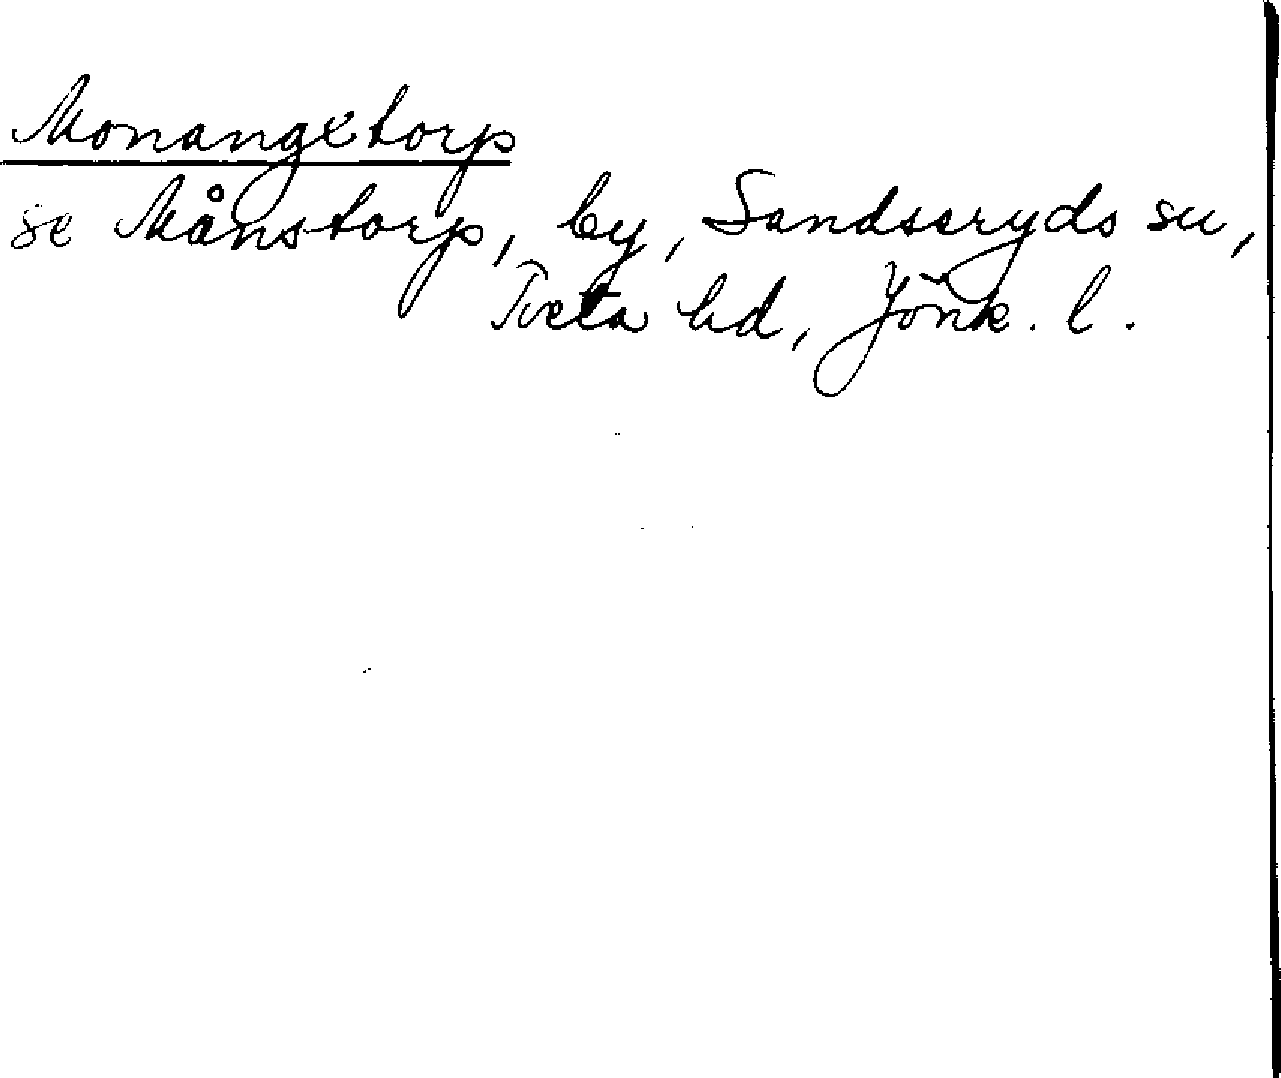 Monangxtorp
se Månstorp, by, Sandseryds sn,
Tveta hd, Jönk. l.